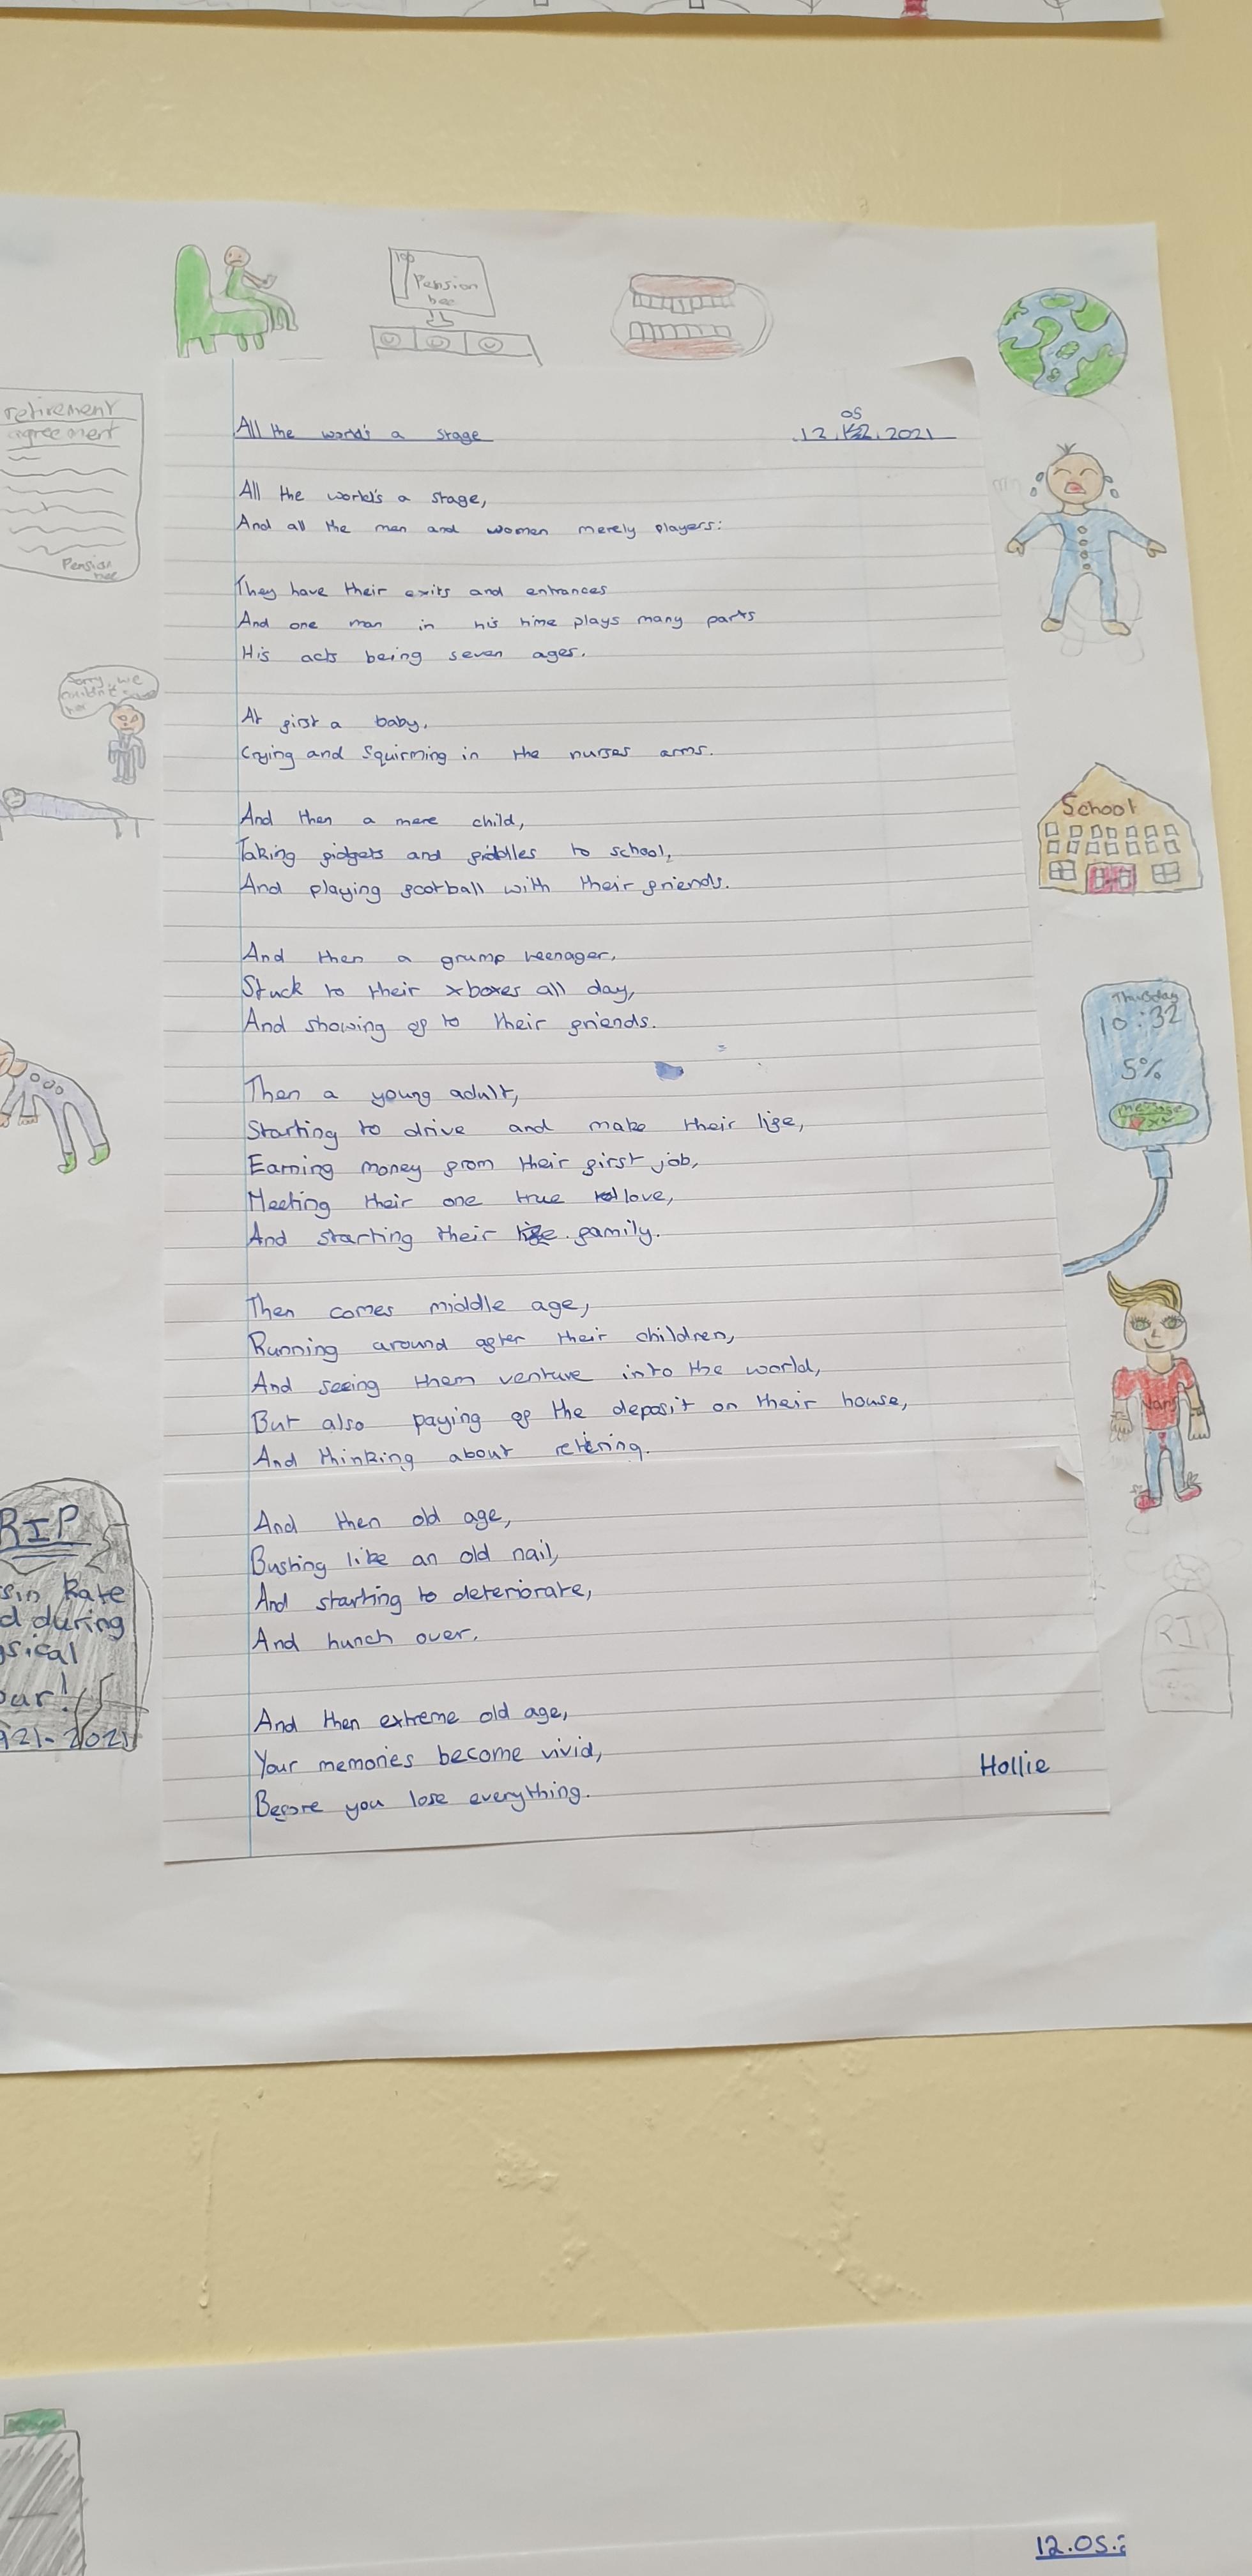 Pension
bee
retirement
agreement
Pension
bee
Sorry, we
couldn't save
her
All the world's a stage
05
12. .2021
All the world's a stage,
And all the men and women merely players:
They have their exits and entrances
And one man in his time plays many parts
His acts being seven ages.
At first a baby,
Crying and Squirming in the nurses arms.
And then a mere child,
Taking fidgets and fiddles to school,
And playing football with their friends.
And then a grump teenager,
Stuck to their xboxes all day,
And showing of to their friends.
Then a young adult,
Starting to drive and make their life,
Earning money from their first job,
Meeting their one true love,
And starting their family.
Then comes middle age,
Running around after their children,
And seeing them venture into the world,
But also paying of the deposit on their house,
And thinking about retering.
And then old age,
Busting like an old nail,
And starting to deteriorate,
And hunch over.
And then extreme old age,
Your memories become vivid,
Before you lose everything.
Hollie
School
Thursday
10:32
5%
message
Vans
RIP
RIP
sin Kate
d during
sical
921-2021
12.05.